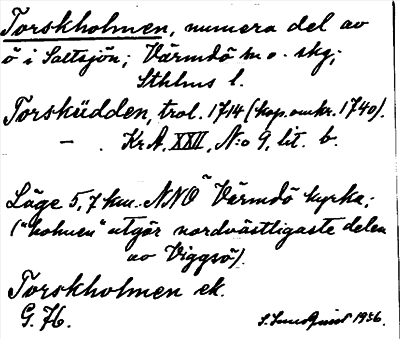 Torskholmen, numera del av
ö i Saltsjön; Värmdö sn o. skg;
Sthlms l.
Torskudden, trol. 1714 (kop. omkr. 1740).
– . KrA, XXII, N:o 9, lit. b.
Läge 5,7 km. NNO Värmdö kyrka;
("holmen" utgör nordvästligaste delen
av Viggsö).
Torskholmen ek.
G. 76.
1936.